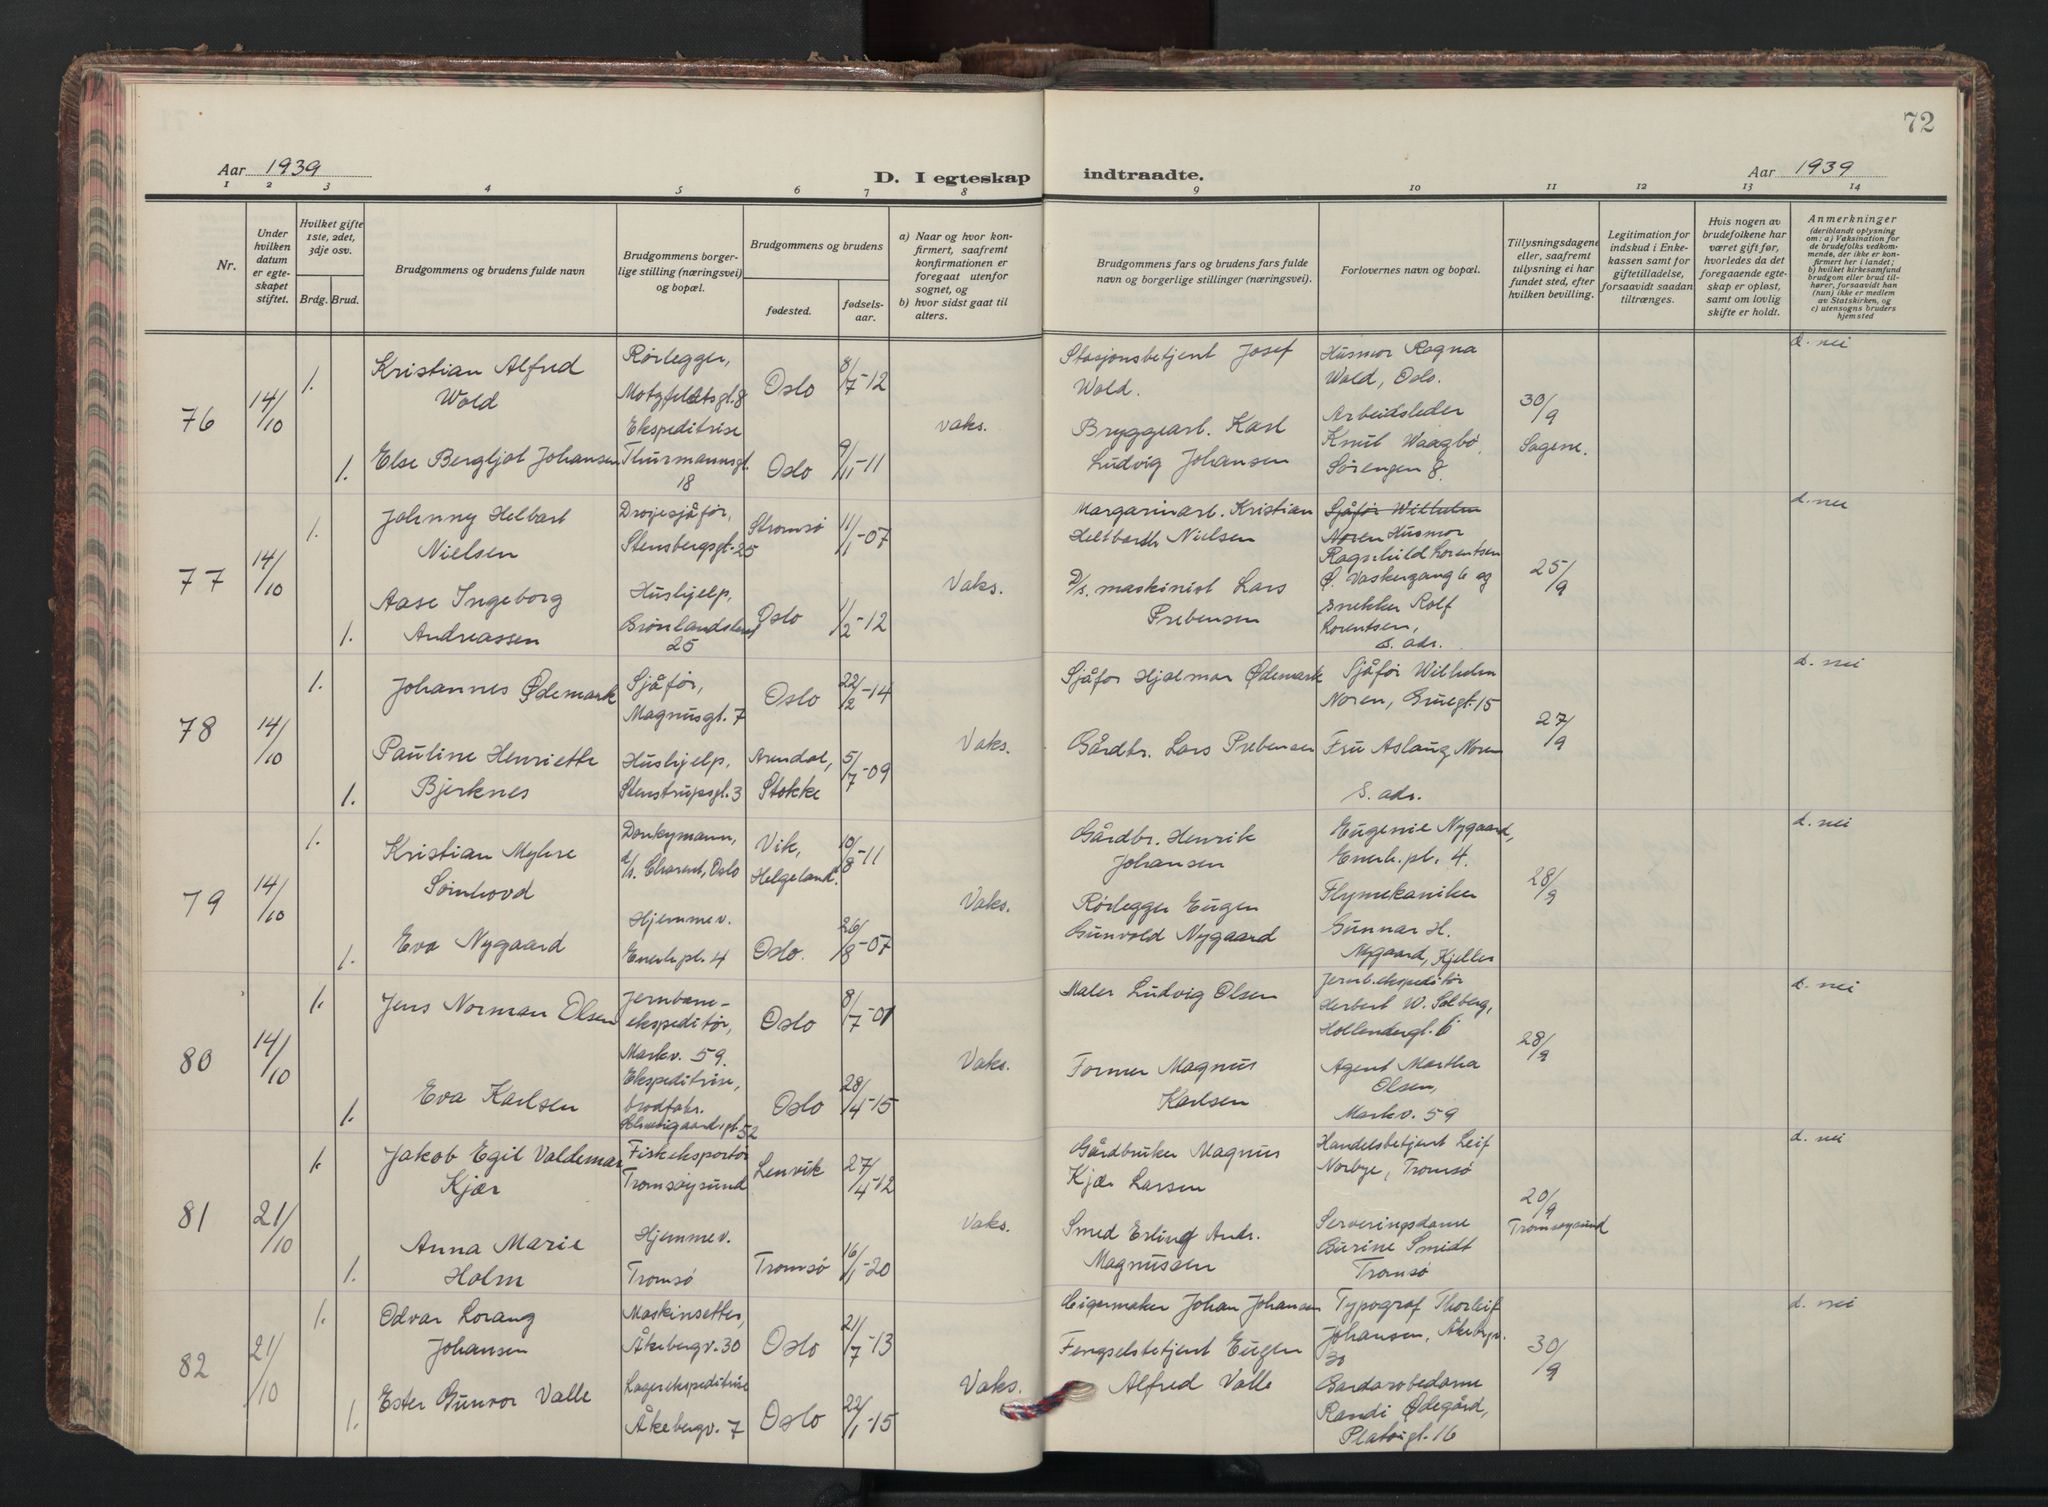 72
Aar 1939
D. I egteskap indtraadte.
Aar 1939
1 2 3 4 5 6 7 8 9 10 11 12 13 14
Nr.
Under hvilken datum er egteskapet stiftet.
Hvilket gifte 1ste, 2det, 3dje osv.
Brdg. Brud.
Brudgommens og brudens fulde navn
Brudgommens borgerlige stilling (næringsvei) og bopæl.
Brudgommens og brudens
fødested.
fødselsaar.
a) Naar og hvor konfirmert, saafremt konfirmationen er foregaat utenfor sognet, og
b) hvor sidst gaat til alters.
Brudgommens fars og brudens fars fulde navn og borgerlige stillinger (næringsvei).
Forlovernes navn og bopæl.
Tillysningsdagene eller, saafremt tillysning ei har fundet sted, efter hvilken bevilling.
Legitimation for indskud i Enkekassen samt for giftetilladelse, forsaavidt saadan tiltrænges.
Hvis nogen av brudefolkene har været gift før, hvorledes da det foregaaende egteskap er opløst, samt om lovlig skifte er holdt.
Anmerkninger (deriblandt oplysning om: a) Vaksination for de brudefolks vedkommende, der ikke er konfirmert her i landet; b) hvilket kirkesamfund brudgom eller brud tilhører, forsaavidt han (hun) ikke er medlem av Statskirken, og c) utensogns bruders hjemsted
76 14/10
1. Kristian Alfred Wold
Rørlegger, Motzfeldtsgt. 8
Oslo 8/7-12
1. Else Bergljot Johansen
Ekspeditrise Thurmannsgt. 18
Oslo 9/1-11
vaks.
Stasjonsbetjent Josef Wold.
Bryggearb. Karl Ludvig Johansen
Husmor Ragna Wold, Oslo.
Arbeidsleder Knut Waagbø, Sørengen 8.
30/9 Sagene.
d. nei
77 14/10
1. Johnny Helbart Nielsen
Drosjesjåfør, Stensbergsgt. 25
Strømsø 11/1-07
1. Aase Ingeborg Andreassen
Hushjelp, Grønlandsleret 25
Oslo 1/2-12
Vaks.
Margarinarb. Kristian Heltbarth Nielsen
D/s. maskinist Lars Prebensen
Sjåfør Wilhelm Noren Husmor Ragnhild Lorentsen Ø. Vaskergang 6 og snekker Rolf Lorentsen, s. adr.
25/9
d. nei
78 14/10
1. Johannes Ødemark
Sjåfør, Magnusgt. 7
Oslo 22/2-14
1. Pauline Henriette Bjerknes
Hushjelp, Stenstrupsgt. 3
Arendal, Stokke 5/7-09
Vaks.
Sjåfør Hjalmar Ødemark
Gårdbr. Lars Prebensen
Sjåfør Wilhelm Noren, Gruegt. 15
Fru Aslaug Noren s. adr.
27/9
d. nei
79 14/10
1. Kristian Myhre Sørhovd
Donkymann, d/s. Charent, Oslo
Vik, Helgeland. 10/8-11
1. Eva Nygaard
Hjemmev. Enerh.pl. 4
Oslo. 26/8-07
Vaks.
Gårdbr. Henrik Johansen
Rørlegger Eugen Gunvold Nygaard
Eugenie Nygaard, Enerh.pl. 4.
Flymekaniker Gunnar H. Nygaard, Kjeller
28/9
d. nei
80 14/10
1. Jens Norman Olsen
Jernbane-ekspeditør, Markv. 59.
Oslo 8/7-01
1. Eva Karlsen
Ekspeditrise, brødfabr. 52
Oslo 28/4-15
Vaks.
Maler Ludvig Olsen
Former Magnus Karlsen
Jernb.ekspeditør Herbert W. Solberg, Hollendergt. 6
Agent Martha Olsen, Markv. 59
28/9
d. nei
81 21/10
1. Jakob Egil Valdemar Kjær
Fiskeksportør Tromsøysund
Lenvik 27/4-12
1. Anna Marie Holm
Hjemmev. Tromsø
Tromsø 16/1-20
Vaks.
Gårdbruker Magnus Kjær Larsen
Smed Erling Andr. Magnussen
Handelsbetjent Leif Norbye, Tromsø
Serveringsdame Burine Smidt Tromsø
20/9 Tromsøysund
d. nei
82 21/10
1. Odvar Lorang Johansen
Maskinsetter, Åkebergv. 30
Oslo 21/7-13
1. Ester Gunvor Valle
Lagerekspeditrise Åkebergv. 7
Oslo 22/1-15
Vaks.
Sigarmaker Johan Johansen
Fengselsbetjent Eugen Alfred Valle
Typograf Thorleif Johansen, Åkebergv. 30
Gardarobedame Randi Ødegård, Platousgt. 16
30/9
d. nei